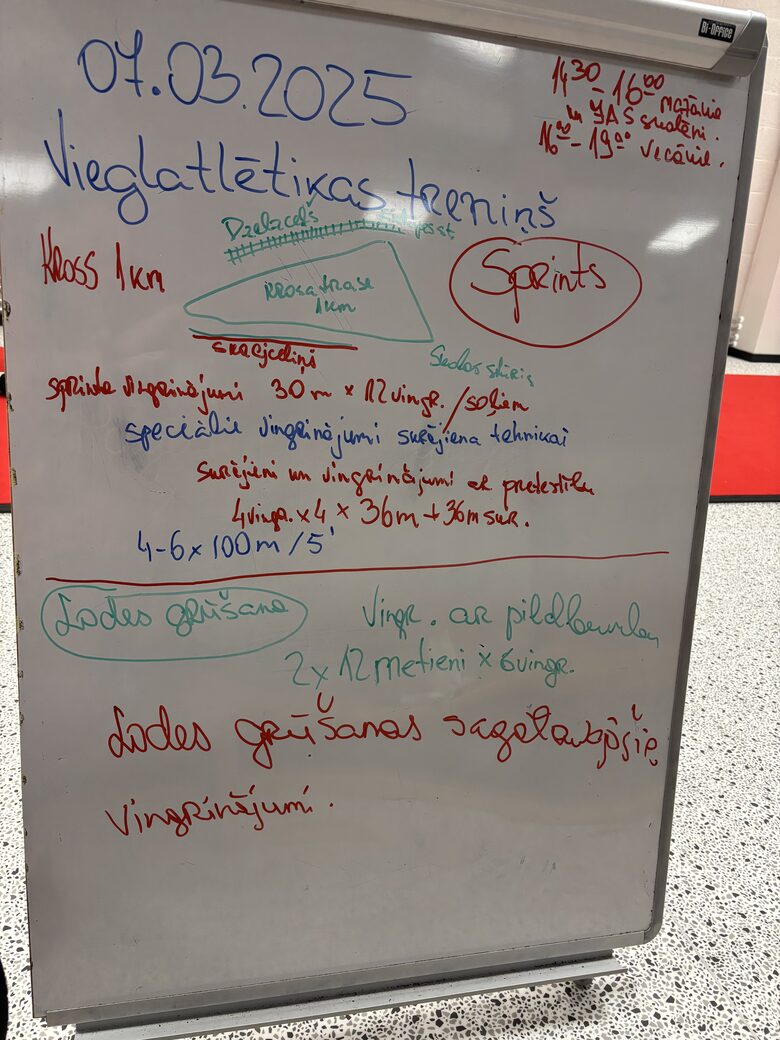 Bi-Office
07.03.2025
14³⁰-16⁰⁰ mazākie
un JAS skolēni.
16⁰⁰-19⁰⁰ vecākie.
Vieglatlētikas treniņš
Dzelzceļš
Kross 1km
krosa trase
1km
Sprints
skrejceliņi
sprinta vingrinājumi 30m x 12 vingr. / soļiem
speciālie vingrinājumi skrējiena tehnikai
skrējieni un vingrinājumi ar pretestību
4 vingr. x 4 x 36m + 36m skr.
4-6 x 100m / 5'
Lodes grūšana
Vingr. ar pildbumbu
2 x 12 metieni x 6 vingr.
Lodes grūšanas sagatavojošie
vingrinājumi.